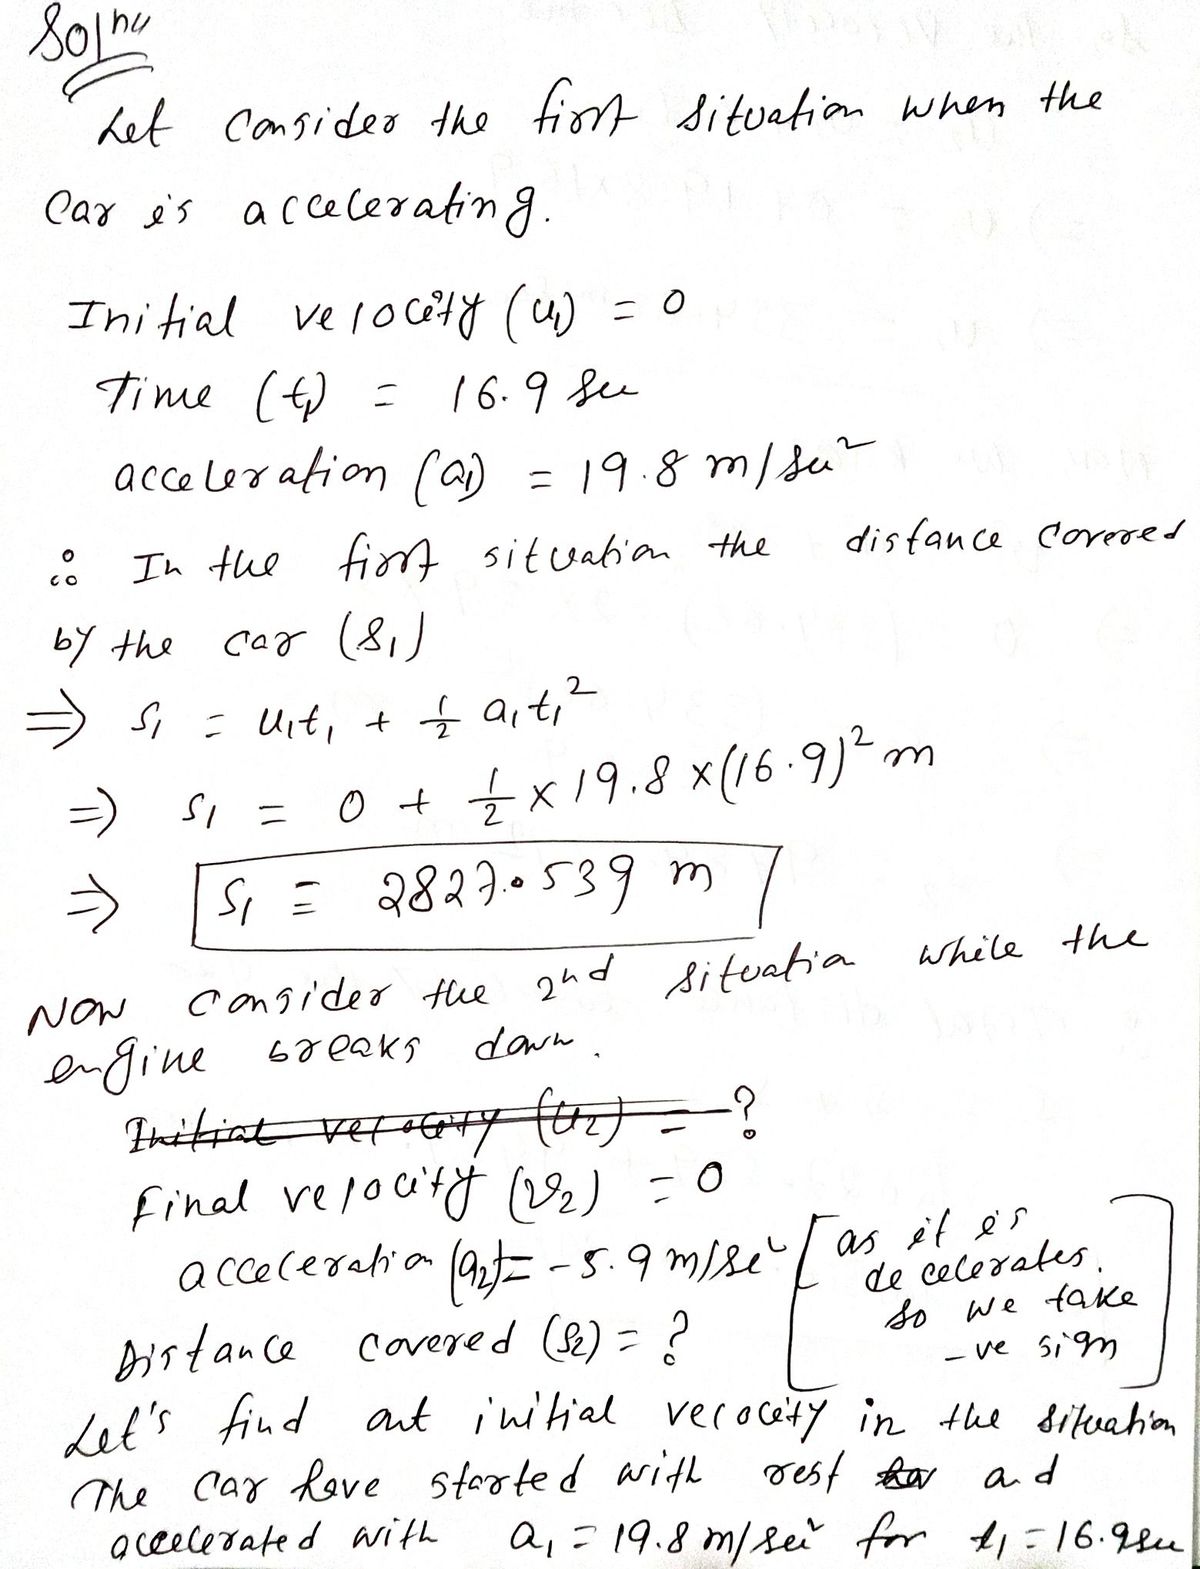 Sol^n
Let consider the first situation when the
Car is accelerating.
Initial velocity (u₁) = 0
Time (t₁) = 16.9 sec
acceleration (a₁) = 19.8 m/sec²
∴ In the first situation the distance covered
by the car (S₁)
⇒ S₁ = u₁t₁ + 1/2 a₁t₁²
⇒ S₁ = 0 + 1/2 × 19.8 × (16.9)² m
⇒ S₁ = 2827.539 m
Now consider the 2nd situation while the
engine breaks down.
Initial velocity (u₂) = ?
Final velocity (v₂) = 0
acceleration (a₂) = -5.9 m/sec² [as it is
decelerates.
so we take
-ve sign]
Distance covered (S₂) = ?
Let's find out initial velocity in the situation
The car have started with rest and
accelerated with a₁ = 19.8 m/sec² for t₁ = 16.9 sec